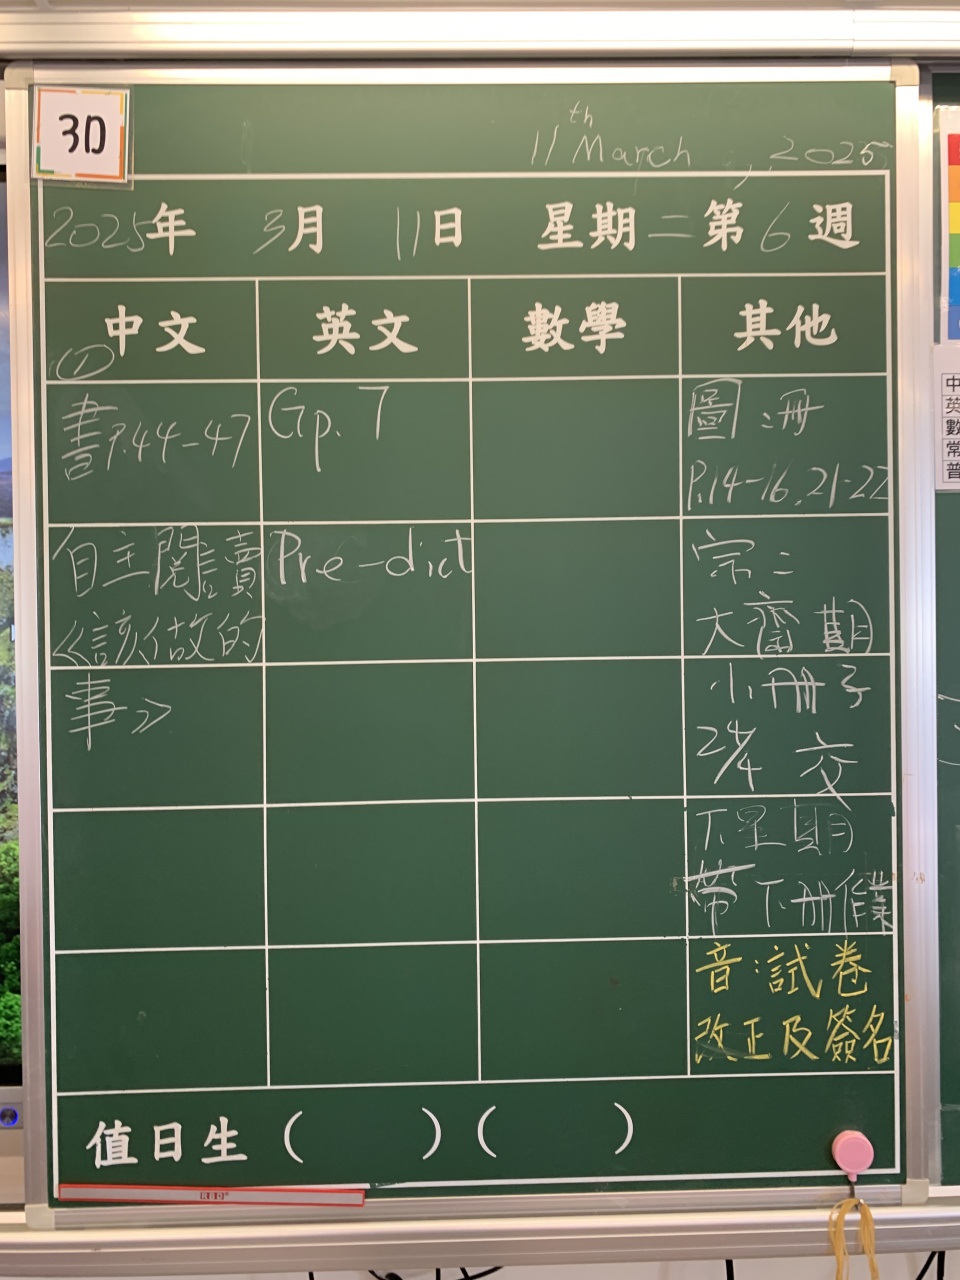 3D
11th March, 2025
2025年 3月 11日 星期二 第6週
中文 英文 數學 其他
①
書P.44-47
自主閱讀
《該做的
事》
Gp. 7
Pre-dict
圖:冊
P.14-16, 21-22
宗:
大齋期
小冊子
24/4 交
下星期
帶下冊
音:試卷
改正及簽名
值日生 ( ) ( )
中
英
數
常
普